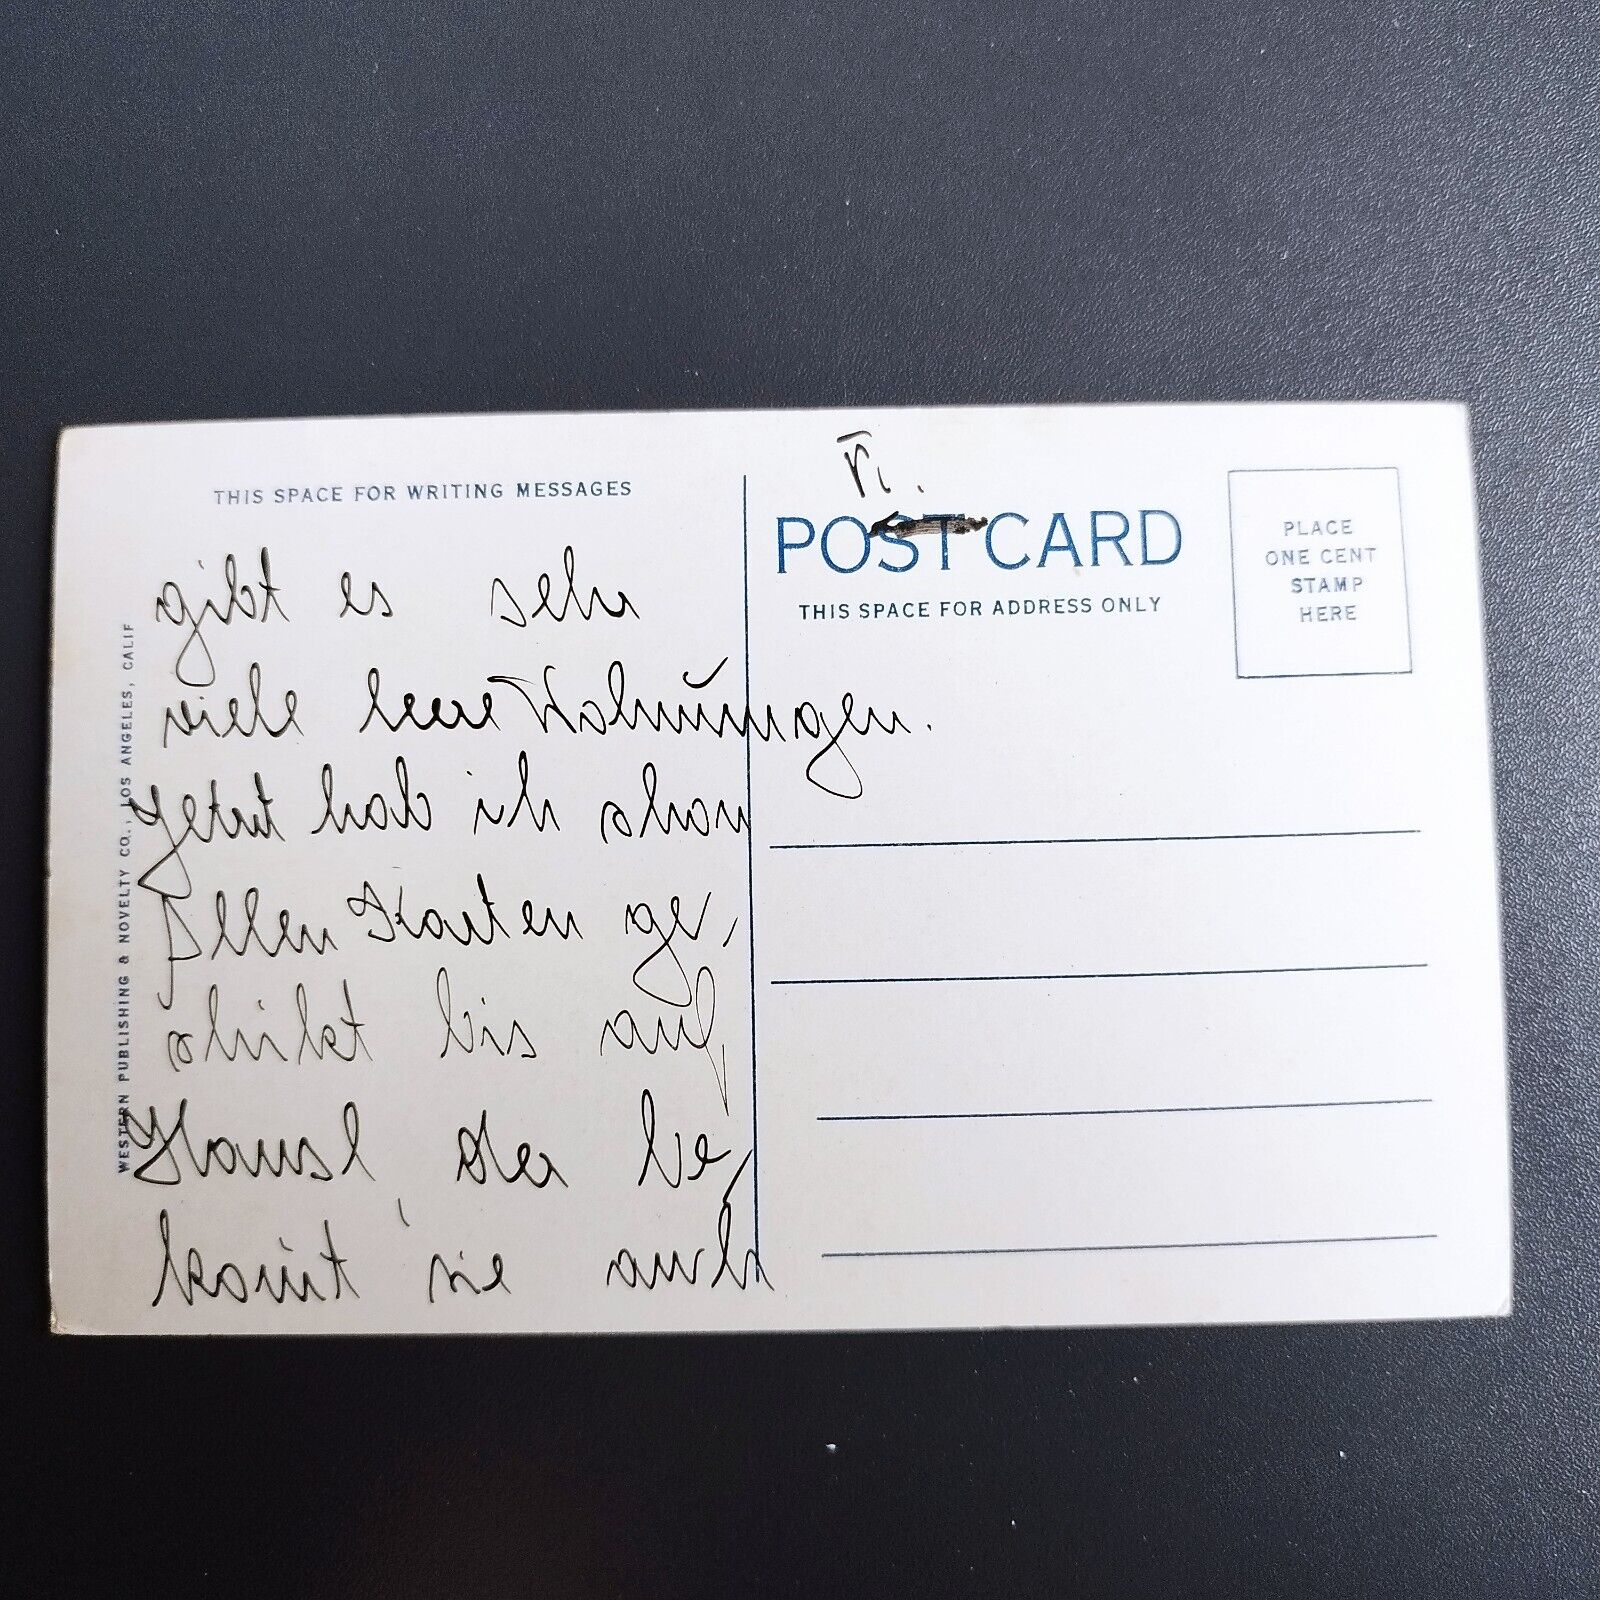 THIS SPACE FOR WRITING MESSAGES
gibt es sehr
viele leere Wohnungen.
Jetzt hab ich schon
Allen Karten ge,
schikt bis auf
Hansl, der be,
komt sie auch
WESTERN PUBLISHING & NOVELTY CO., LOS ANGELES, CALIF
VI.
POST CARD
THIS SPACE FOR ADDRESS ONLY
PLACE
ONE CENT
STAMP
HERE